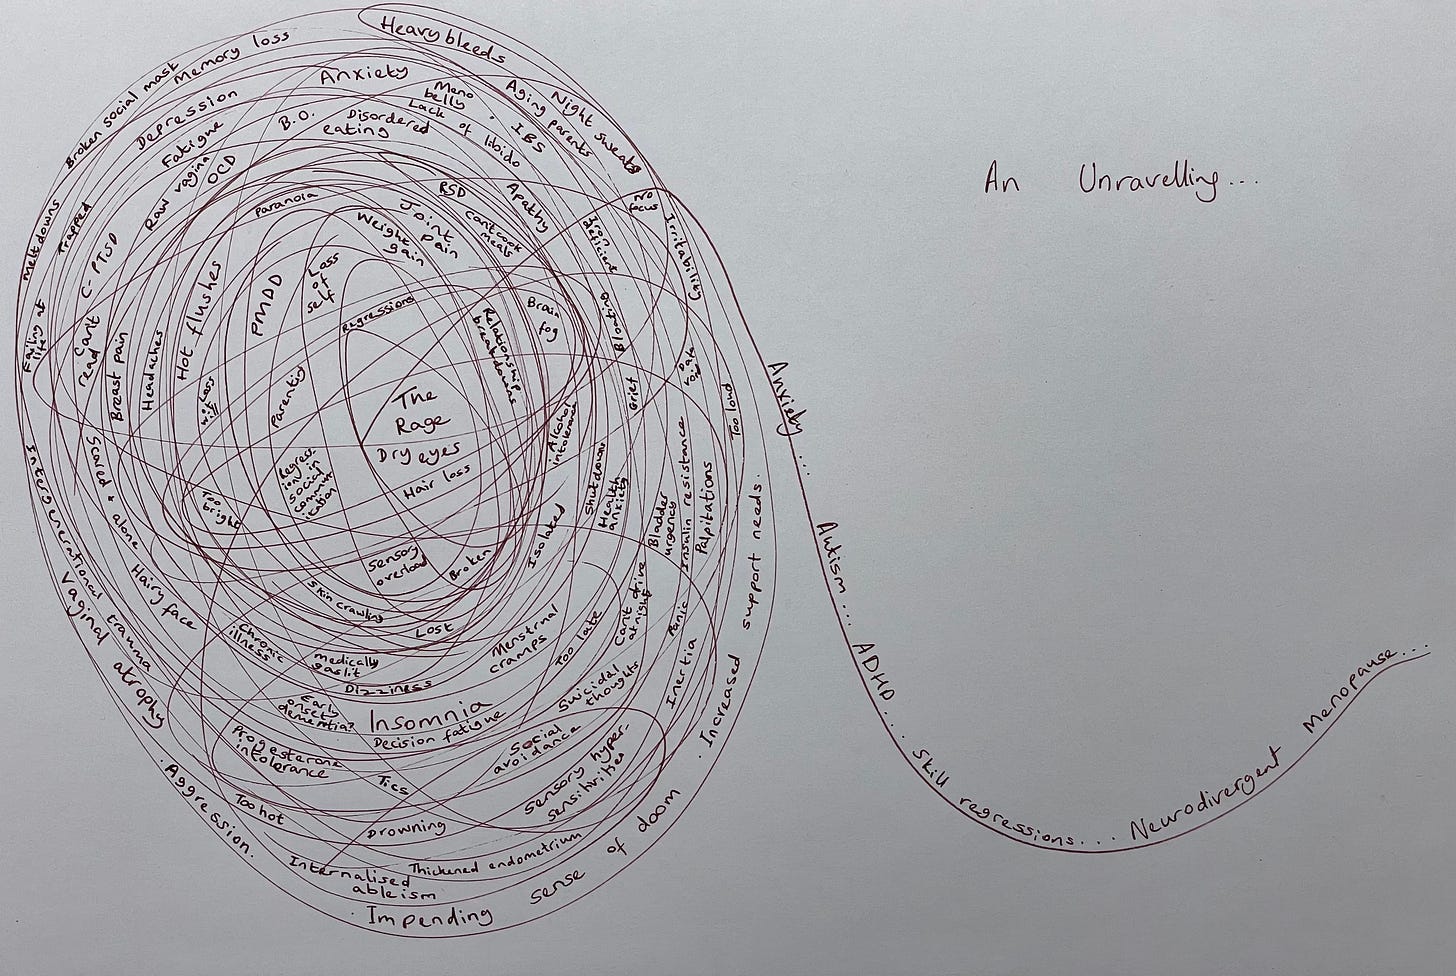 An Unravelling...
Heavy bleeds
Memory loss
Broken social mask
Anxiety
Meno
belly
Aging parents
Night sweats
Depression
B.O.
Disordered
eating
Lack of libido
IBS
Fatigue
Raw vagina
OCD
Paranoia
RSD
Apathy
No
focus
Meltdowns
Trapped
C-PTSD
Joint
pain
Weight
gain
Can't cook
meals
Iron
deficient
Irritability
Hot flushes
PMDD
Loss
of
self
Regressions
Brain
fog
Bloating
Failing at
life
Can't
read
Breast pain
Headaches
Relationship
breakdowns
Data
void
Loss
of
will
Parenting
The
Rage
Dry eyes
Hair loss
Alcohol
intolerance
Grief
Too loud
Scared + alone
Too
bright
Regress-
ions in
social
commun-
ication
Shutdowns
Health
anxiety
Bladder
urgency
Insulin resistance
Palpitations
Increased support needs.
Intergenerational trauma
Sensory
overload
Broken
Isolated
Hairy face
Skin crawling
Lost
Vaginal atrophy
Chronic
illness
Medically
gaslit
Menstrual
cramps
Too late
Can't drive
at night
Panic
Dizziness
Early
onset
dementia?
Insomnia
Decision fatigue
Suicidal
thoughts
Inertia
Progesterone
intolerance
Social
avoidance
Sensory hyper-
sensitivities
Tics
Aggression.
Too hot
Drowning
Thickened endometrium
Internalised
ableism
Impending sense of doom
Anxiety...
Autism...
ADHD...
Skill regressions...
Neurodivergent Menopause...